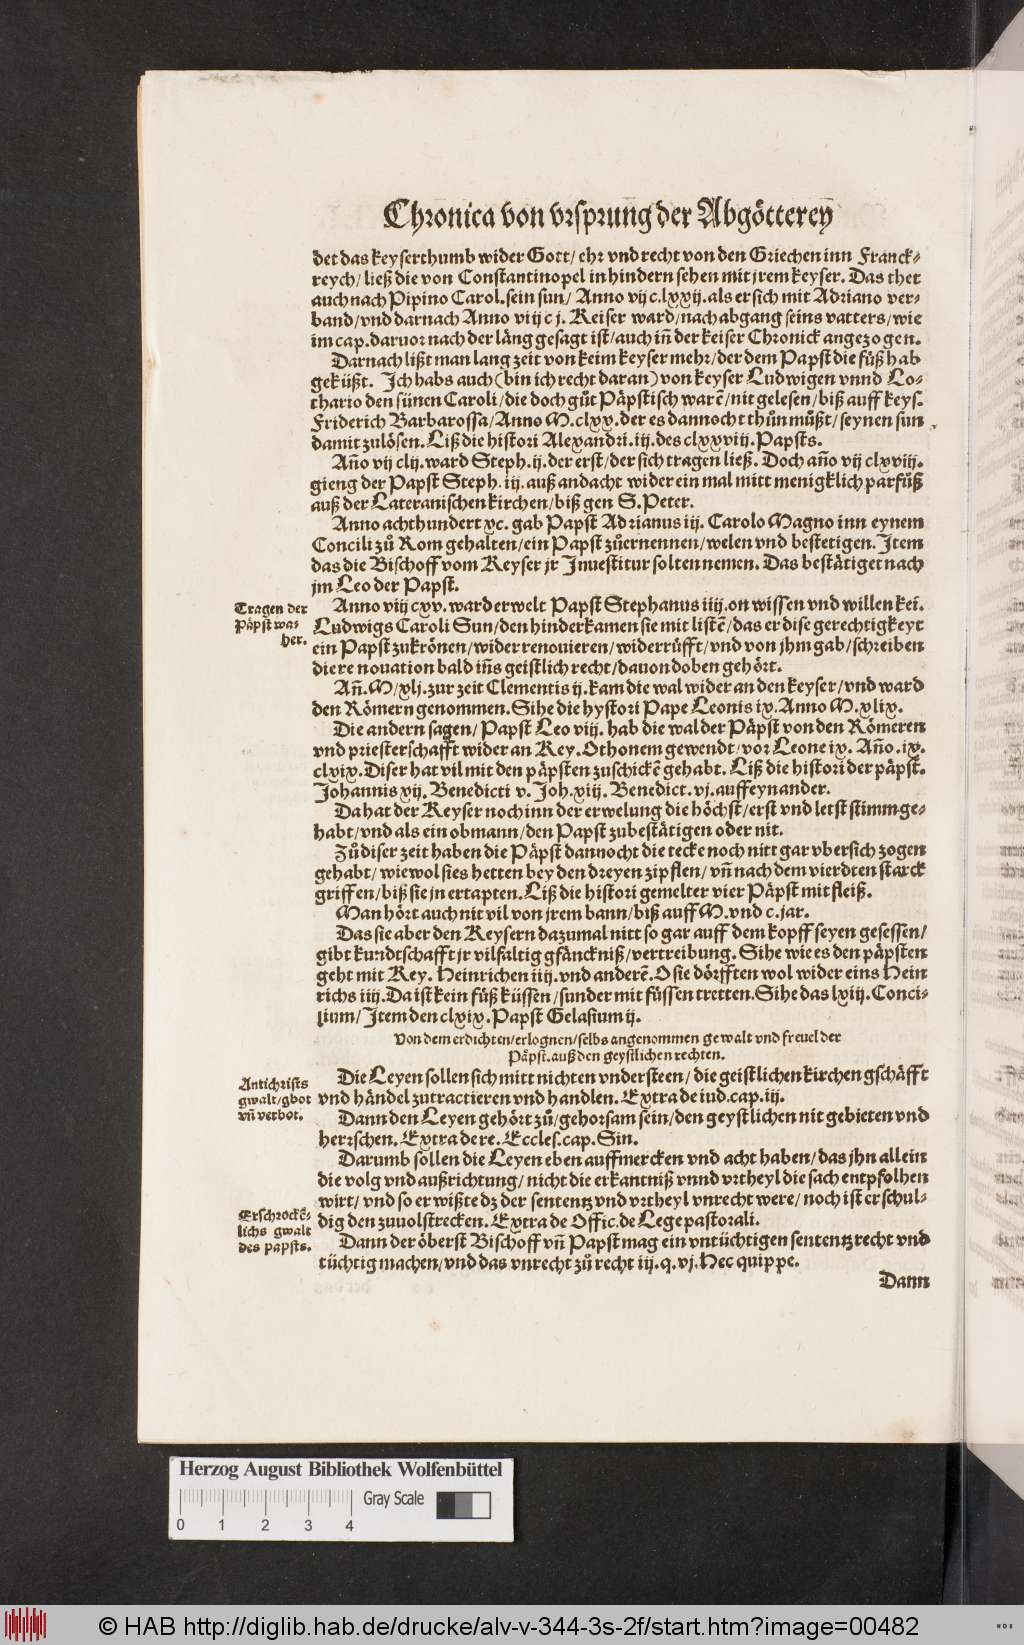 Chronica von vrsprung̃ der Abgötterey
det das keyserthumb wider Gott/ ehr vnd recht von den Griechen inn Franck⸗
reych/ ließ die von Constantinopel in hindern sehen mit jrem keyser. Das thet
auch nach Pipino Carol. sein sun/ Anno vij c. lxxij. als er sich mit Adriano ver⸗
band/ vnd darnach Anno viij c j. Keiser ward/ nach abgang seins vatters/ wie
im cap. daruor nach der läng gesagt ist/ auch iñ der keiser Chronick angezogen.
Darnach lißt man lang zeit von keim keyser mehr/ der dem Papst die füß hab
geküßt. Ich habs auch (bin ich recht daran) von keyser Ludwigen vnnd Lo⸗
thario den sünen Caroli/ die doch gůt Päpstisch warẽ/ nit gelesen/ biß auff keys.
Friderich Barbarossa/ Anno M. clxv. der es dannocht thůn můßt/ seynen sun
damit zulösen. Liß die histori Alexandri. iij. des clxxviij. Papsts.
Año vij clij. ward Steph. ij. der erst/ der sich tragen ließ. Doch año vij clxviij.
gieng der Papst Steph. iij. auß andacht wider ein mal mitt menigklich parfůß
auß der Lateranischen kirchen/ biß gen S. Peter.
Anno achthundert xc. gab Papst Adrianus iij. Carolo Magno inn eynem
Concili zů Rom gehalten/ ein Papst zůernennen/ welen vnd bestetigen. Item
das die Bischoff vom Keyser jr Inuestitur solten nemen. Das bestätiget nach
jm Leo der Papst.
Tragen der
Päpst wa⸗
her.
Anno viij cxv. ward erwelt Papst Stephanus iiij. on wissen vnd willen kei.
Ludwigs Caroli Sun/ den hinderkamen sie mit listẽ/ das er dise gerechtigkeyt
ein Papst zukrönen/ wider renouieren/ widerrůfft/ vnd von jhm gab/ schreiben
die re nouation bald iñs geistlich recht/ dauon doben gehört.
Añ. M/ xlj. zur zeit Clementis ij. kam die wal wider an den keyser/ vnd ward
den Römern genommen. Sihe die hystori Pape Leonis ix. Anno M. xlix.
Die andern sagen/ Papst Leo viij. hab die wal der Päpst von den Römeren
vnd priesterschafft wider an Key. Othonem gewendt/ vor Leone ix. Año. ix.
clxix. Diser hat vil mit den päpsten zuschickẽ gehabt. Liß die histori der päpst.
Johannis xij. Benedicti v. Joh. xiij. Benedict. vj. auffeynander.
Da hat der Keyser noch inn der erwelung die höchst/ erst vnd letst stimm ge⸗
habt/ vnd als ein obmann/ den Papst zubestätigen oder nit.
Zů diser zeit haben die Päpst dannocht die tecke noch nitt gar vbersich zogen
gehabt/ wiewol sies hetten bey den dreyen zipflen/ vñ nach dem vierdten starck
griffen/ biß sie jn ertapten. Liß die histori gemelter vier Päpst mit fleiß.
Man hört auch nit vil von jrem bann/ biß auff M. vnd c. jar.
Das sie aber den Keysern dazumal nitt so gar auff dem kopff seyen gesessen/
gibt kundtschafft jr vilfaltig gfänckniß/ vertreibung. Sihe wie es den päpsten
geht mit Key. Heinrichen iiij. vnd anderẽ. O sie dörfften wol wider eins Hein
richs iiij. Da ist kein füß küssen/ sunder mit füssen tretten. Sihe das lxiij. Conci⸗
lium/ Item den clxix. Papst Gelasium ij.
Von dem erdichten/ erlognen/ selbs angenommen gewalt vnd freuel der
Päpst. auß den geystlichen rechten.
Antichrists
gwalt/ gbot
vñ verbot.
Die Leyen sollen sich mitt nichten vndersteen/ die geistlichen kirchen gschäfft
vnd händel zutractieren vnd handlen. Extra de iud. cap. iij.
Dann den Leyen gehört zů/ gehorsam sein/ den geystlichen nit gebieten vnd
herrschen. Extra de re. Eccles. cap. Sin.
Darumb sollen die Leyen eben auffmercken vnd acht haben/ das jhn allein
die volg vnd außrichtung/ nicht die erkantniß vnnd vrtheyl die sach entpfolhen
wirt/ vnd so er wißte dz der sententz vnd vrtheyl vnrecht were/ noch ist er schul⸗
dig den zuuolstrecken. Extra de Offic. de Lege pastorali.
Erschrockẽ⸗
lichs gwalt
des papsts.
Dann der öberst Bischoff vñ Papst mag ein vntüchtigen sententz recht vnd
tüchtig machen/ vnd das vnrecht zů recht iij. q. vj. Hec quippe.
Dann
Herzog August Bibliothek Wolfenbüttel
Gray Scale
0 1 2 3 4
© HAB http://diglib.hab.de/drucke/alv-v-344-3s-2f/start.htm?image=00482